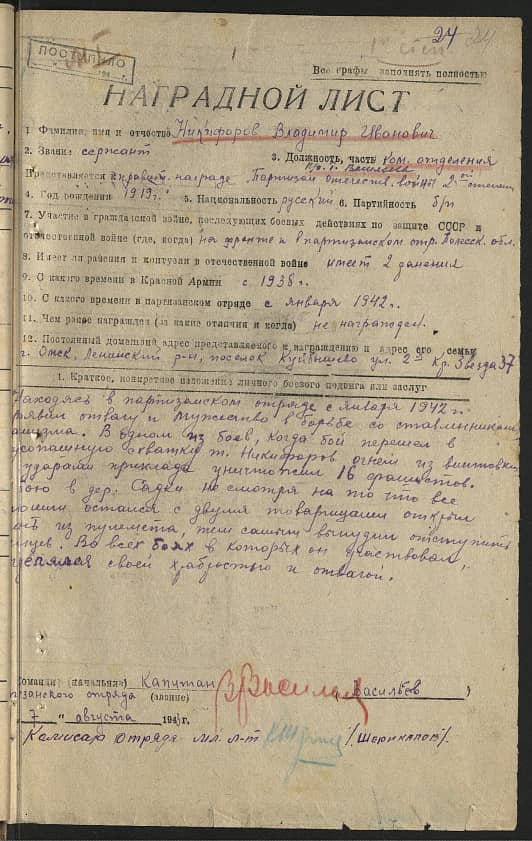 24 24
ПОСТУПИЛО
194 г.
Все графы заполнять полностью
НАГРАДНОЙ ЛИСТ
1. Фамилия, имя и отчество Никифоров Владимир Иванович
2. Звание сержант 3. Должность, часть ком. отделения
Представляется к правит. награде Партизан отечеств. войны 2ой степени
4. Год рождения 1919 г. 5. Национальность русский 6. Партийность б/п
7. Участие в гражданской войне, последующих боевых действиях по защите СССР и
отечественной войне (где, когда) на фронте и в партизанском отр. Полесск. обл.
8. Имеет ли ранения и контузии в отечественной войне имеет 2 ранения
9. С какого времени в Красной Армии с 1938 г.
10. С какого времени в партизанском отряде с января 1942 г.
11. Чем ранее награжден (за какие отличия и когда) не награжден.
12. Постоянный домашний адрес представляемого к награждению и адрес его семьи
г. Омск, Ленинский р-н, поселок Куйбышево ул. 2я Кр. Звезда 37
1. Краткое, конкретное изложение личного боевого подвига или заслуг
Находясь в партизанском отряде с января 1942 г.
отвагу и мужество в борьбе со ставленниками
В одном из боев, когда бой перешел в
схватку т. Никифоров огнем из винтовки
ударами приклада уничтожил 16 фашистов.
в дер. не смотря на то что все
остался с двумя товарищами открыл
из пулемета, тем самым вынудил отступить
Во всех боях в которых он участвовал,
своей храбростью и отвагой.
Командир (начальник) Капитан (Васильев)
партизанского отряда (звание)
"7" августа 194 г.
Комиссар отряда мл. л-т